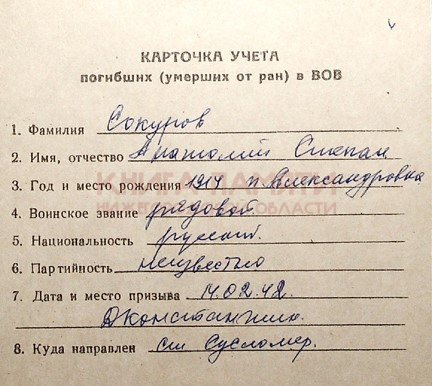 КАРТОЧКА УЧЕТА
погибших (умерших от ран) в ВОВ
1. Фамилия Сокуров
2. Имя, отчество Анатолий Степан
3. Год и место рождения 1917 п. Александровка
КНИГА ПАМЯТИ
НИЖЕГОРОДСКОЙ ОБЛАСТИ
4. Воинское звание рядовой
5. Национальность русский.
6. Партийность неизвестно
7. Дата и место призыва 14.02.42.
8. Куда направлен ст